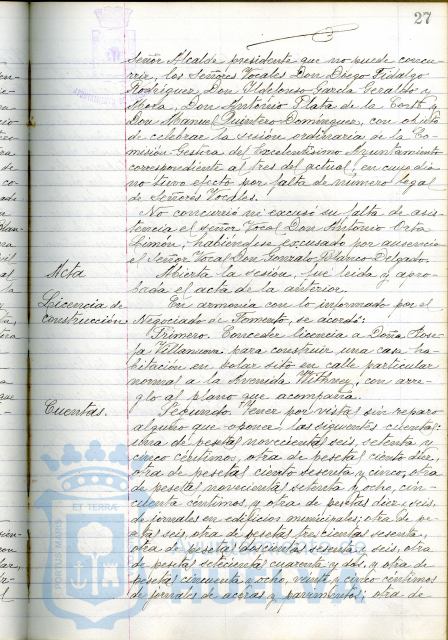 27
Señor Alcalde presidente que no puede concu-
rrir, los Señores Vocales Don Diego Fidalgo
Rodríguez, Don Ildefonso García Geraldo y
Mora, Don Antonio Plata de la Corte y
Don Manuel Quintero Domínguez, con objeto
de celebrar la sesión ordinaria de la Co-
misión Gestora del Excelentísimo Ayuntamiento
correspondiente al tres del actual, en cuyo día
no tuvo efecto por falta de número legal
de Señores Vocales.
No concurrió ni excusó su falta de asis-
tencia el señor Vocal Don Antonio Orta
Limón, habiéndose excusado por ausencia
el Señor Vocal Don Gonzalo Blanco Delgado.
Acta
Abierta la sesión, fué leida y apro-
bada el acta de la anterior.
Licencia de
construcción
En armonía con lo informado por el
Negociado de Fomento, se acordó:
Primero. Conceder licencia a Doña Jose-
fa Villanueva para construir una casa ha-
bitación en solar sito en calle particular
normal a la Avenida Withney, con arre-
glo al plano que acompaña.
Cuentas.
Segundo. Tener por vistas sin reparo
alguno que oponer las siguientes cuentas:
una de pesetas novecientas seis, setenta y
cinco centimos, otra de pesetas ciento diez,
otra de pesetas ciento sesenta y cinco, otra
de pesetas novecientas setenta y ocho, cin-
cuenta centimos, y otra de pesetas diez y seis,
de jornales en edificios municipales; otra de pe-
setas seis, otra de pesetas trescientas sesenta,
otra de pesetas doscientas sesenta y seis, otra
de pesetas setecientas cuarenta y dos, y otra de
pesetas cincuenta y ocho, veinte y cinco centimos
de jornales de aceras y pavimentos; otra de
PORTUS MARIS
ET TERRÆ
HUELVA